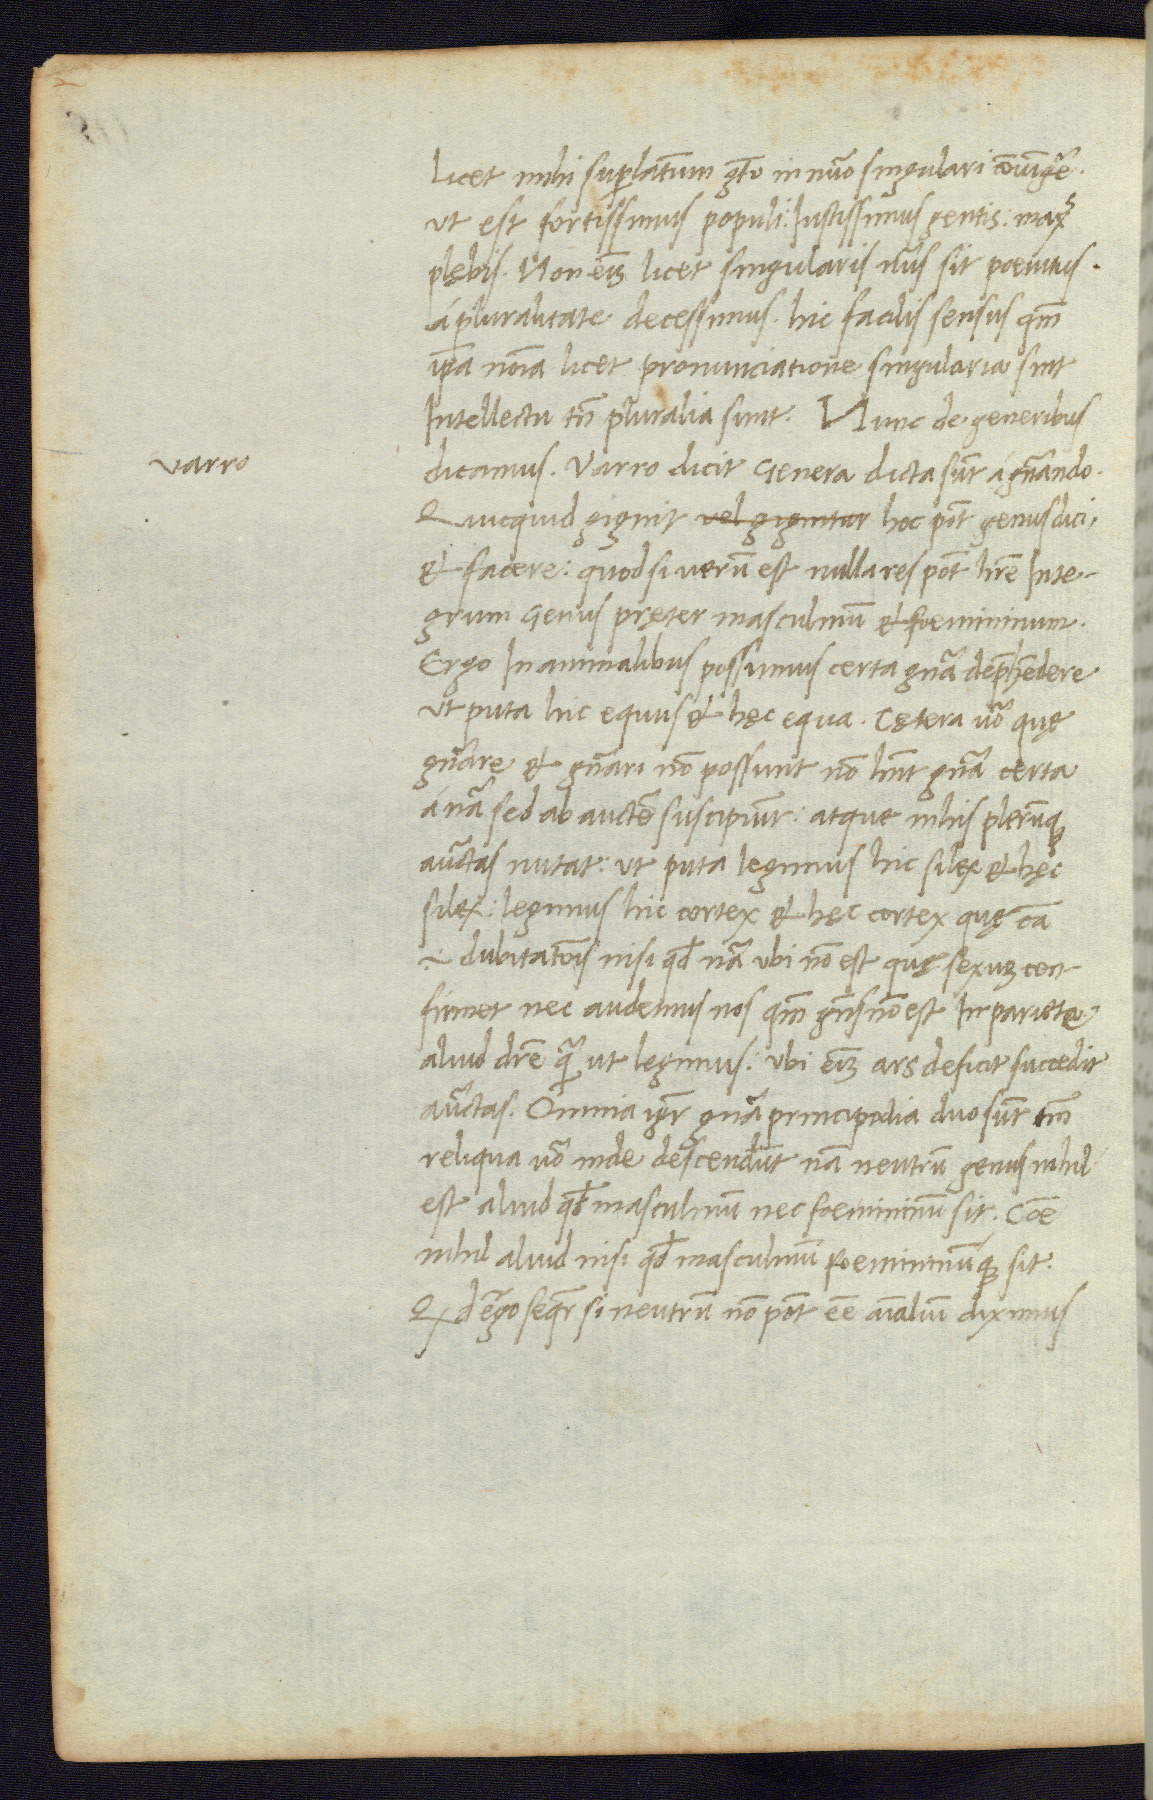 Licet mihi suplatum gto in nuo singulari coniugere.
ut est fortissimus populi: Iustissimus gentis: max
plebis. Non eiz licet singularis nus sit
á pluralitate decessimus. hic facilis sensus qm
ipa noia licet pronunciatione singularia sint
Intellectu tn pluralia sunt. Nunc de generibus
varro
dicamus. Varro dicit Genera dicta sut á gnando.
Quicquid gignit vel gignitur hoc pot genus dici,
& facere: quod si uerũ est nulla res pot hre Inte-
grum Genus pręter masculinũ & foemininum.
Ergo In animalibus possumus certa gna deprehẽdere
ut puta hic equus & hęc equa. Cętera uo quę
gnare & gnari nõ possunt nõ hnt gna certa
á na sed ab aucte suscipiũt: atque in his plerũq;
auctas nutat: ut puta legimus hic silex & hęc
silex: legimus hic cortex & hęc cortex quę ca
÷ dubitatois nisi qd na ubi nõ est quę sexuz con-
firmet nec audemus nos qm gns nõ est In pariete
aliud dre qa ut legimus: ubi eiz ars deficit succedit
auctas. Omnia igr gna principalia duo sũt tm
reliqua uo inde descendũt na neutrũ genus nihil
est aliud qd masculinũ nec foemininũ sit. Coe
nihil aliud nisi qd masculinũ foemininũq; sit.
Qd ergo seqr si neutrũ nõ pot ee aialiũ diximus